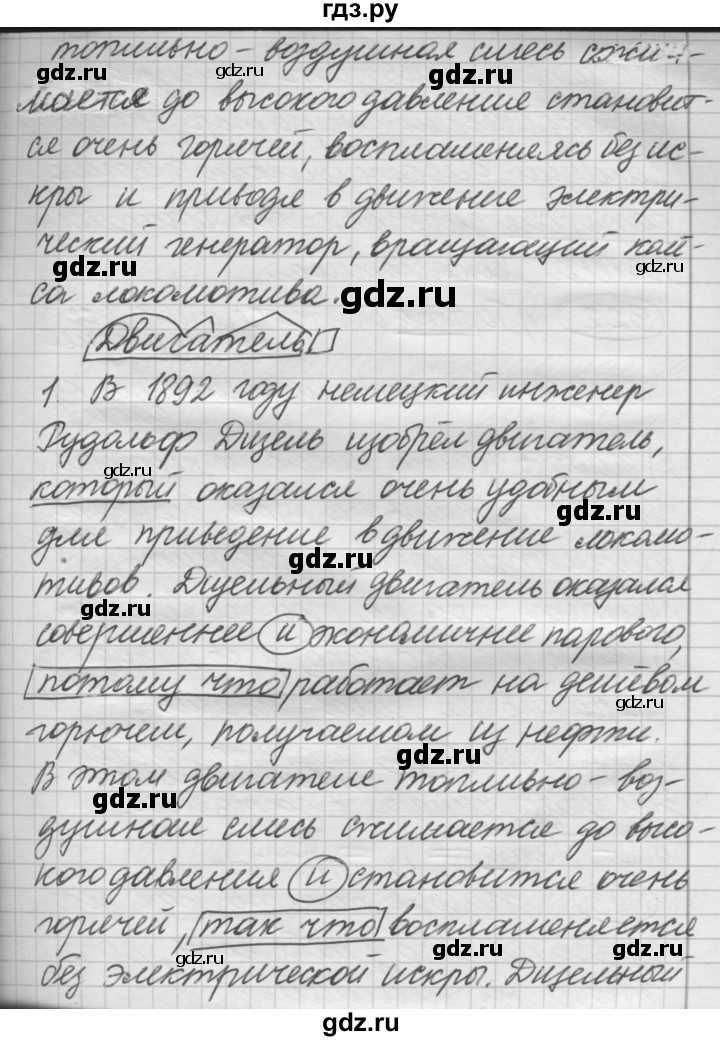 гдз.ру
топливно-воздушная смесь сжи-
мается до высокого давления становит-
ся очень горячей, воспламеняясь без ис-
кры и приводя в движение электри-
ческий генератор, вращающий
gdz.ru
gdz.ru
са локомотива.
gdz.ru
Двигатель
gdz.ru
1. В 1892 году немецкий инженер
Рудольф Дизель изобрёл двигатель,
gdz.ru
который оказался очень удобным
gdz.ru
для приведение в движение локомо-
gdz.ru
тивов. Дизельный двигатель оказался
gdz.ru
совершеннее и экономичнее парового,
потому что работает на дешёвом
gdz.ru
горючем, получаемом из нефти.
gdz.ru
В этом двигателе топливно-воз-
gdz.ru
душная смесь сжимается до высо-
кого давления и становится очень
горячей, так что воспламеняется
gdz.ru
gdz.ru
gdz.ru
без электрической искры. Дизельный
gdz.ru